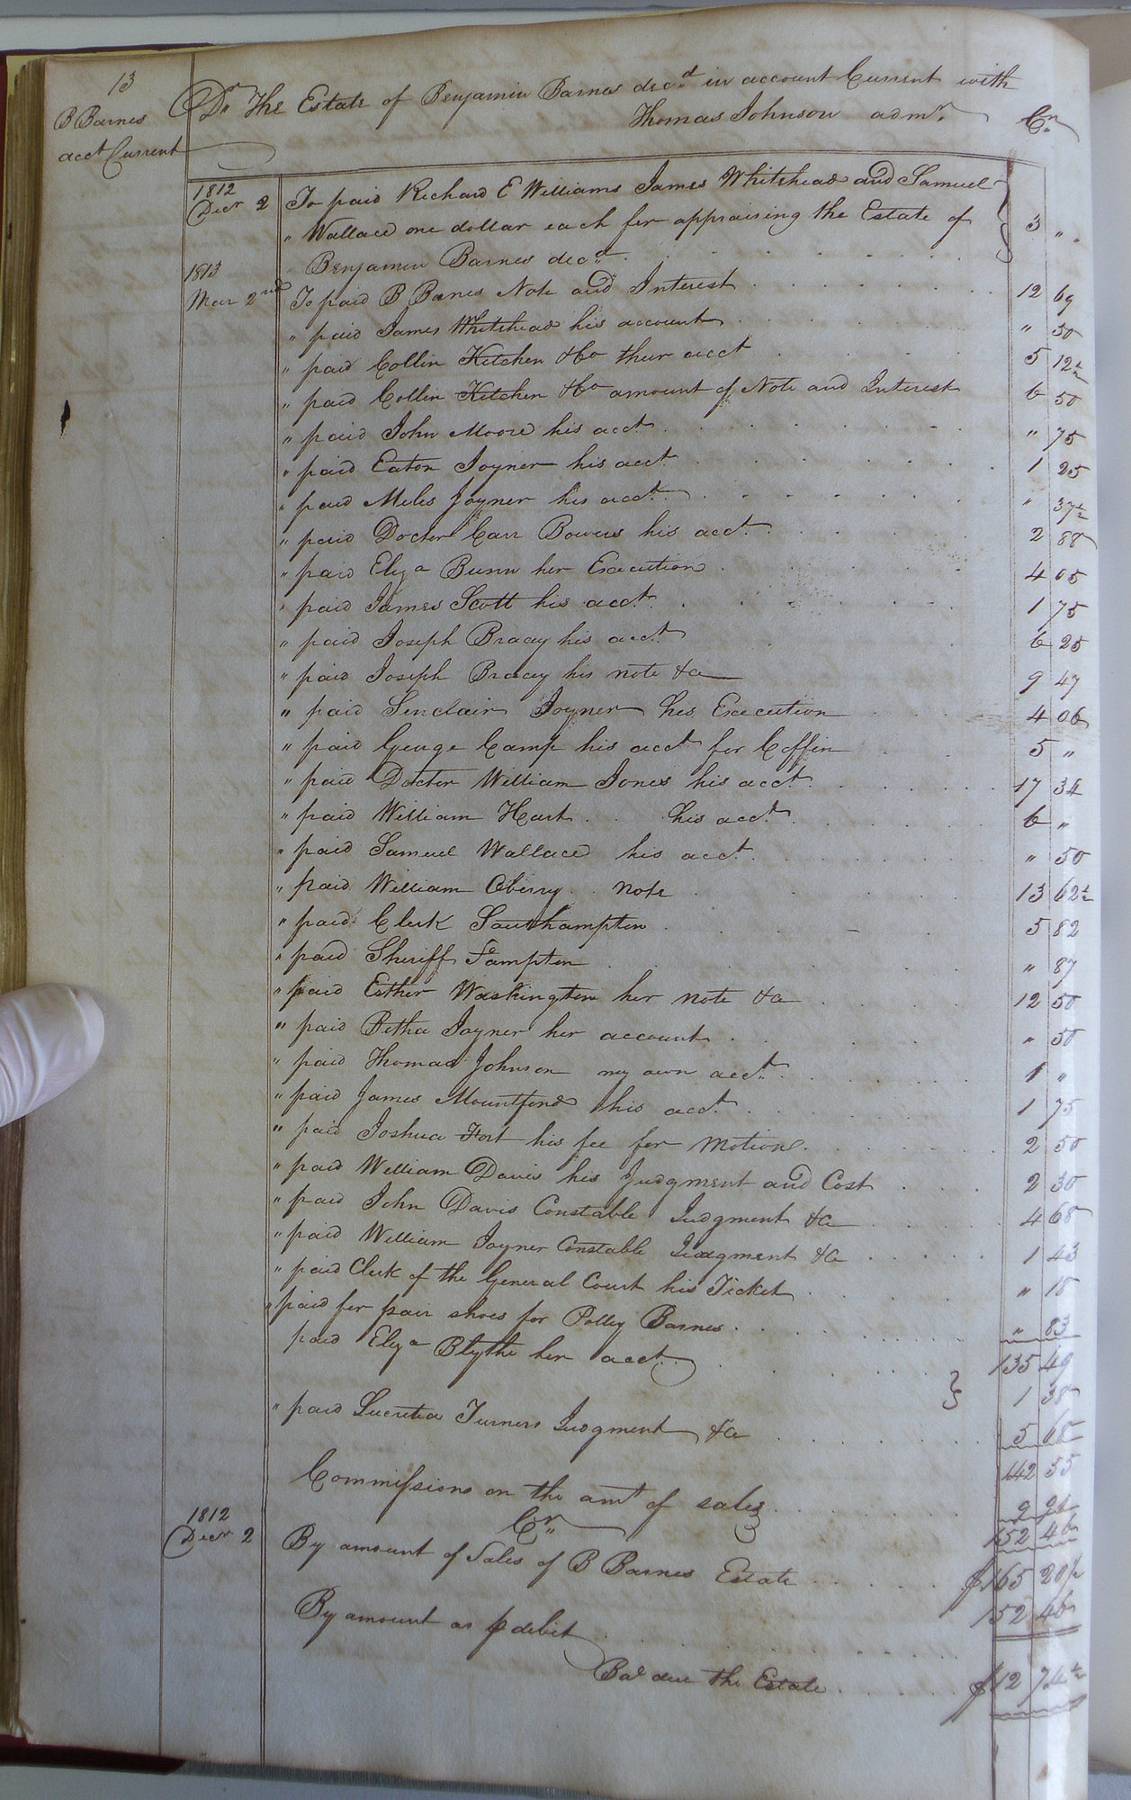 13
B Barnes
acct Current
Dr The Estate of Benjamin Barnes decd in account Current with
Thomas Johnson admr. Cr.
1812
Decr 2 To paid Richard E Williams James Whitehead and Samuel
" Wallace one dollar each for appraising the Estate of 3 "
Benjamin Barnes decd.
1813
Mar 2nd To paid B Barnes Note and Interest 12 69
" paid James Whitehead his account " 50
" paid Collin Kitchen & Co thur acct 5 12½
" paid Collin Kitchen & Co amount of Note and Interest 6 50
" paid John Moore his acct. " 75
" paid Eaton Joyner his acct 1 25
" paid Miles Joyner his acct. " 37½
" paid Docter Carr Bowers his acct. 2 88
" paid Eliza Bunn her Execution 4 05
" paid James Scott his acct. 1 75
" paid Joseph Bracey his acct 6 25
" paid Joseph Bracey his note &c 9 47
" paid Sinclair Joyner his Execution 4 06
" paid George Camp his acct for Coffin 5 "
" paid Docter William Jones his acct. 17 34
" paid William Hart his acct. 6 "
" paid Samuel Wallace his acct. " 50
" paid William Oberry note 13 62½
" paid Clerk Southampton 5 82
" paid Sheriff Sampton " 87
" paid Esther Washington her note &c 12 50
" paid Retha Joyner her account " 50
" paid Thomas Johnson my own acct. 1 "
" paid James Mountford his acct. 1 75
" paid Joshua Fort his fee for motion. 2 50
" paid William Davis his Judgment and Cost 2 30
" paid John Davis Constable Judgment &c 4 68
" paid William Joyner Constable Judgment &c 1 43
" paid Clerk of the General Court his Ticket " 15
" paid for pair shoes for Polley Barnes. " 83
135 49
paid Eliza Blythe her acct. 1 38
" paid Lucretia Turners Judgment &c 5 68
142 55
Commissions on the amt of sales 9 91
152 46
Cr.
1812
Decr 2 By amount of Sales of B Barnes Estate $165 20½
By amount as p debit 152 46
Bal due the Estate $12 74½